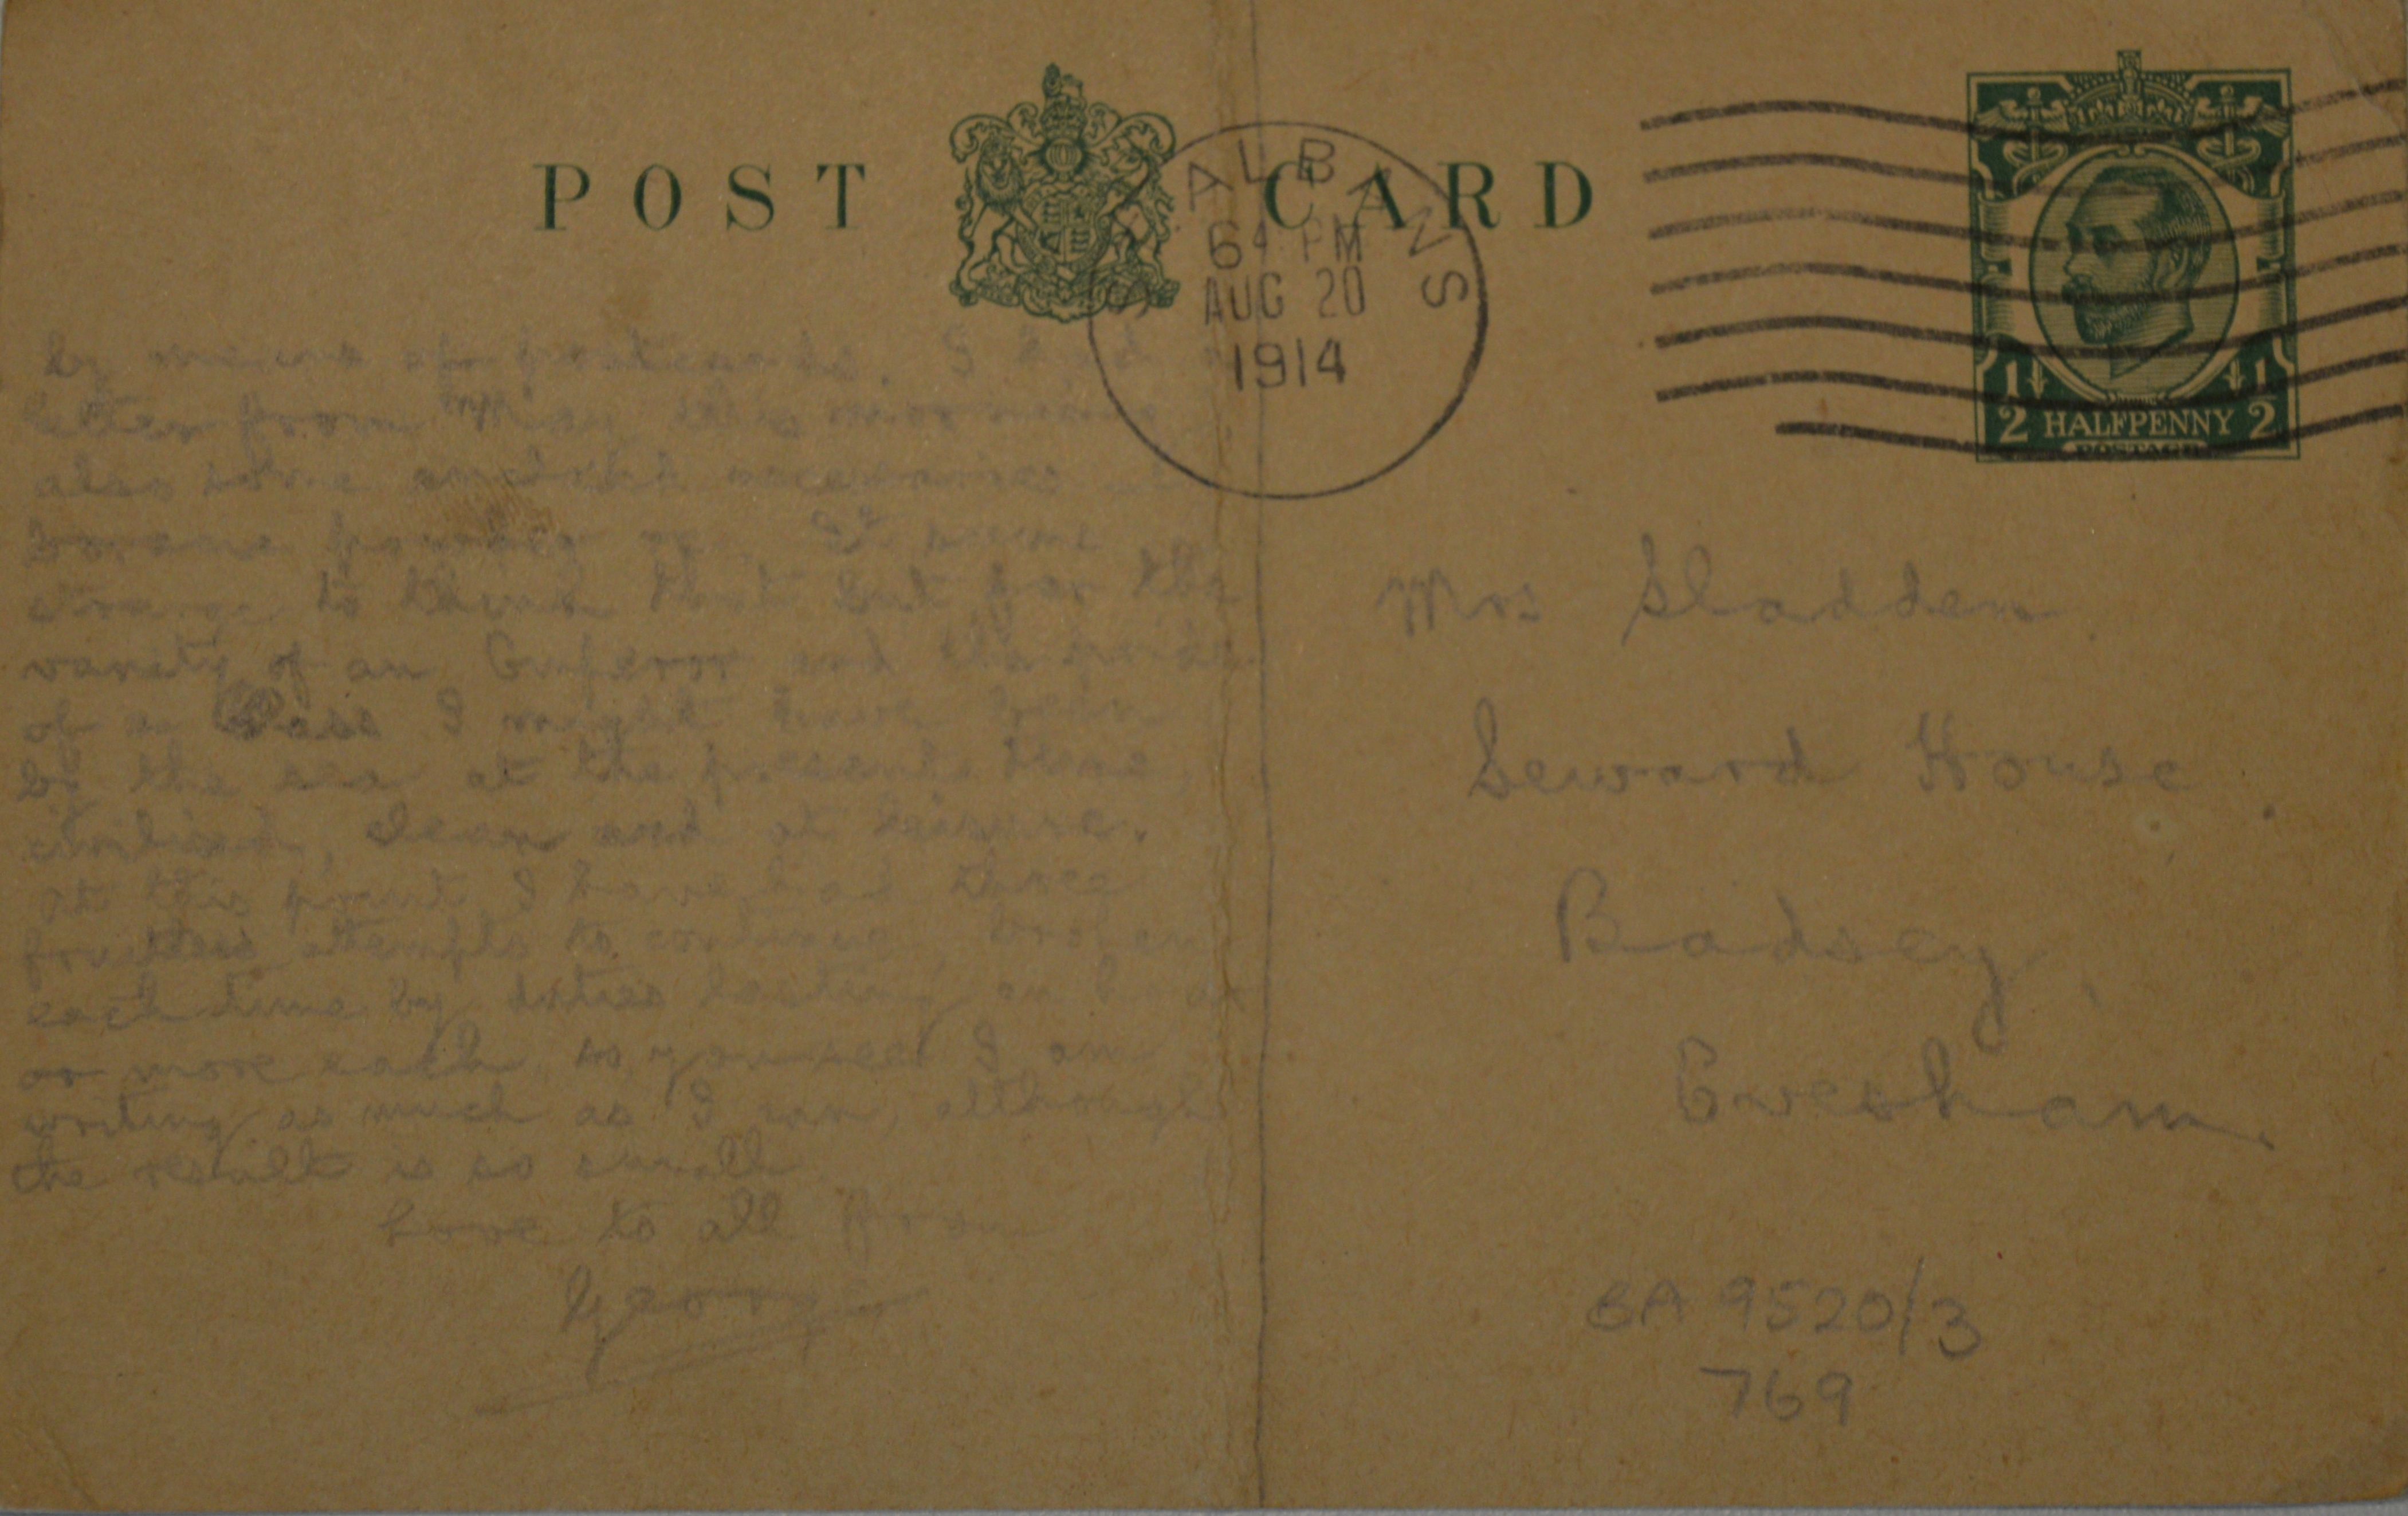 POST CARD
ST ALBANS
64 PM
AUG 20
1914
1/2 HALFPENNY 1/2
POSTAGE
by means of postcards. I had a
letter from May this morning
also some
boracic powder &c. It seems
strange to think that but for the
vanity of an Emperor and the pride
of a I might have been
by the sea at the present time,
civilised, clean and at leisure.
At this point I have had three
fruitless attempts to continue, broken
each time by duties lasting an hour
or more each so you see I am
writing as much as I can, although
the result is so small.
Love to all from
George
Mrs Sladden
Seward House
Badsey,
Evesham.
BA 9520/3
769